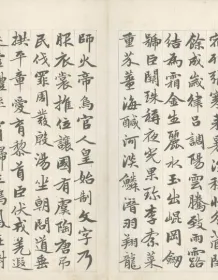 餘成歲律呂調陽雲騰致雨露
結為霜金生麗水玉出崐岡劍
號巨闕珠稱夜光果珍李柰菜
重芥薑海鹹河淡鱗潛羽翔龍
師火帝鳥官人皇始制文字乃
服衣裳推位讓國有虞陶唐弔
民伐罪周發殷湯坐朝問道垂
拱平章愛育黎首臣伏戎羌遐